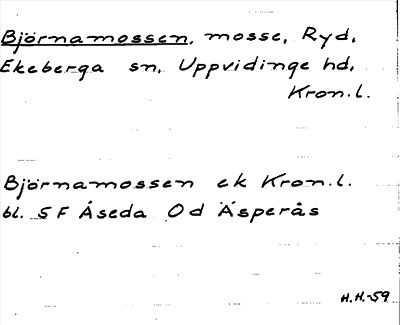 Björnamossen, mosse, Ryd,
Ekeberga sn, Uppvidinge hd,
Kron.l.
Björnamossen ek Kron.l.
bl. 5 F Åseda Od Äsperås
H.H.-59